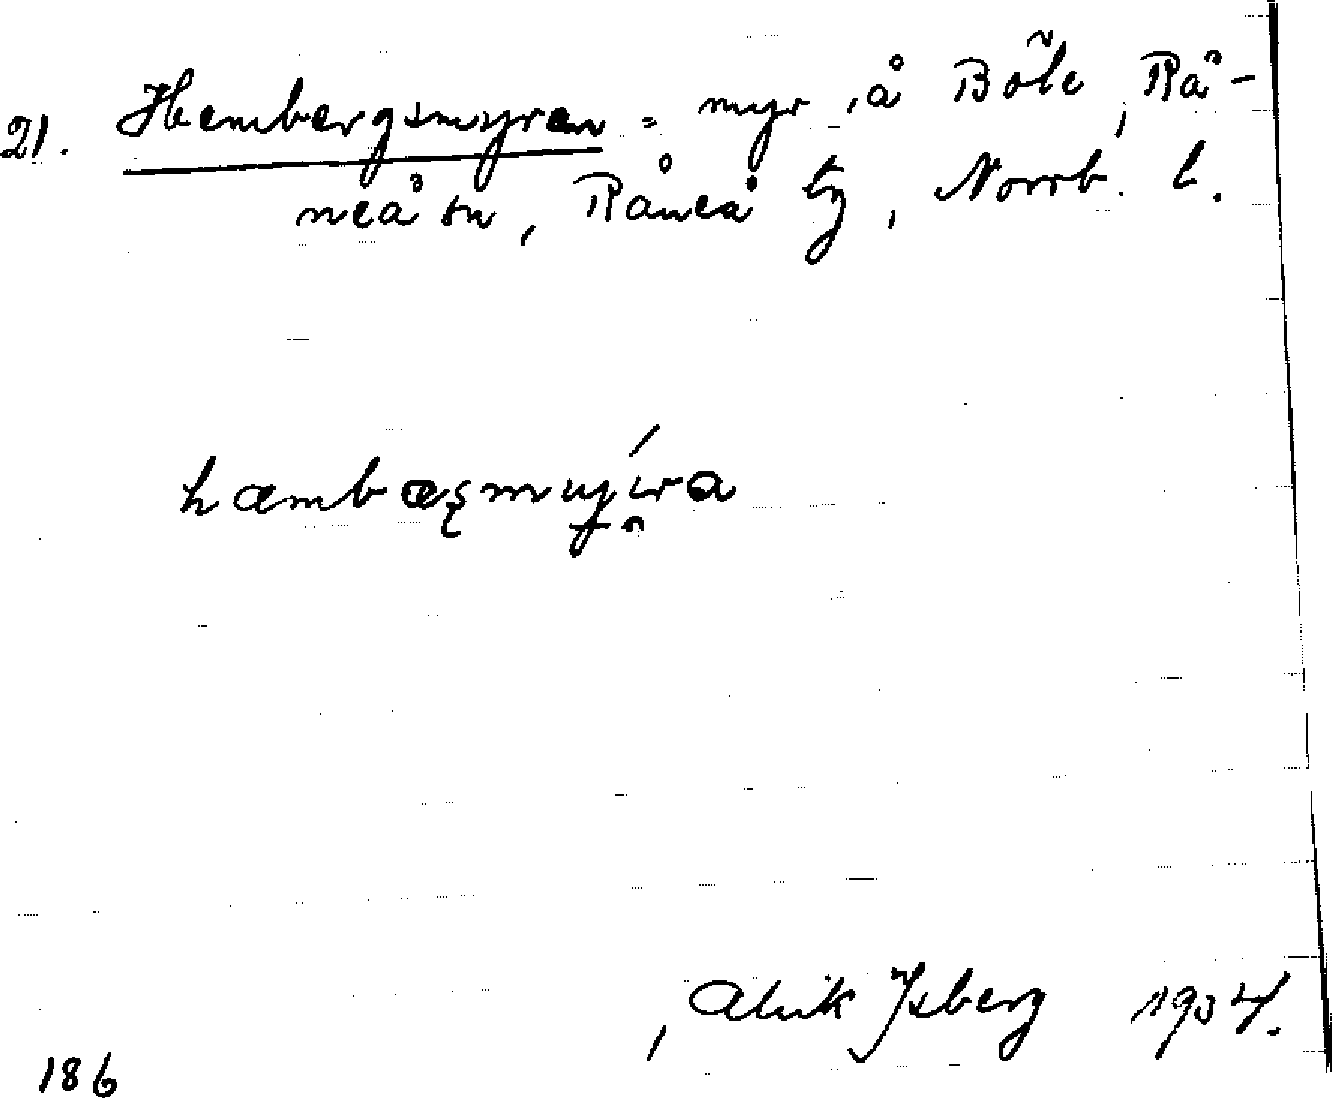 21. Hembergsmyren = myr, å Böle, Rå-
neå sn, Råneå tg, Norrb. l.
hæmbæʂmyi̯ra
Alvik Isberg 1934.
186